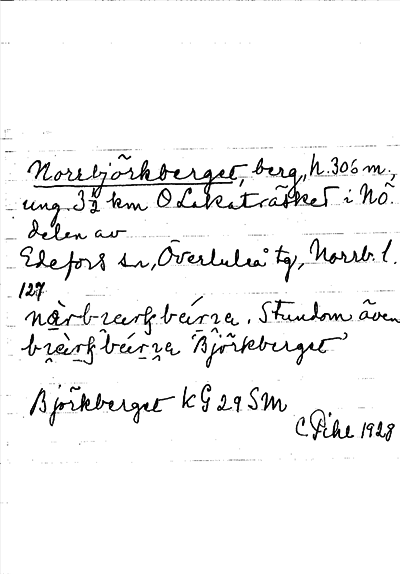 Norrbjörkberget, berg, h. 306 m.,
ung. 3½ km O Lakaträsket i NÖ.
delen av
Edefors sn, Överluleå tg, Norrb. l.
127
Stundom även
Björkberget
Björkberget KG 29 SM
C Pihl 1928